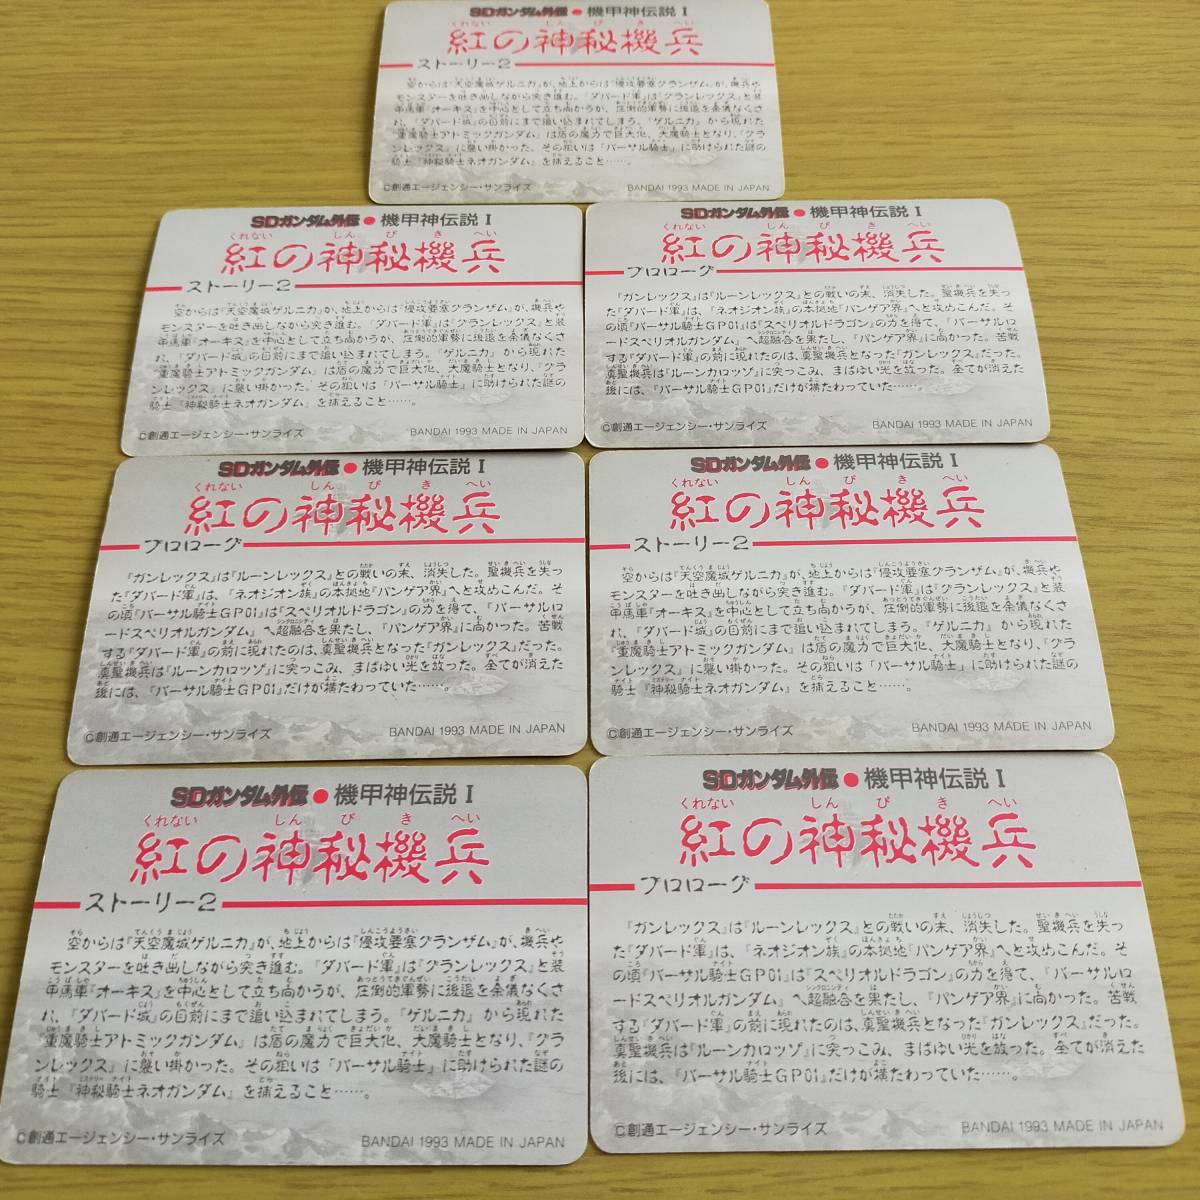 SDガンダム外伝●機甲神伝説 I
紅の神秘機兵
ストーリー2
空からは『天空魔城ゲルニカ』が、地上からは『侵攻要塞グランザム』が、機兵や
モンスターを吐き出しながら突き進む。『ダバード軍』は『グランレックス』と装
甲馬車『オーキス』を中心として立ち向かうが、圧倒的軍勢に後退を余儀なくさ
れ、『ダバード城』の目前にまで追い込まれてしまう。『ゲルニカ』から現れた
『重魔騎士アトミックガンダム』は盾の魔力で巨大化、大魔騎士となり、『グラ
ンレックス』に襲い掛かった。その狙いは「バーサル騎士」に助けられた謎の
騎士『神秘騎士ネオガンダム』を捕えること……。
©創通エージェンシー・サンライズ
BANDAI 1993 MADE IN JAPAN
SDガンダム外伝●機甲神伝説 I
くれない しん ぴ き へい
紅の神秘機兵
ストーリー2
空からは『天空魔城ゲルニカ』が、地上からは『侵攻要塞グランザム』が、機兵や
モンスターを吐き出しながら突き進む。『ダバード軍』は『グランレックス』と装
甲馬車『オーキス』を中心として立ち向かうが、圧倒的軍勢に後退を余儀なくさ
れ、『ダバード城』の目前にまで追い込まれてしまう。『ゲルニカ』から現れた
『重魔騎士アトミックガンダム』は盾の魔力で巨大化、大魔騎士となり、『グラ
ンレックス』に襲い掛かった。その狙いは「バーサル騎士」に助けられた謎の
騎士『神秘騎士ネオガンダム』を捕えること……。
©創通エージェンシー・サンライズ
BANDAI 1993 MADE IN JAPAN
SDガンダム外伝●機甲神伝説 I
くれない しん ぴ き へい
紅の神秘機兵
プロローグ
『ガンレックス』は『ルーンレックス』との戦いの末、消失した。聖機兵を失っ
た『ダバード軍』は、『ネオジオン族』の本拠地『パンゲア界』へと攻めこんだ。そ
の頃『バーサル騎士GP01』は『スペリオルドラゴン』の力を得て、『バーサルロ
ードスペリオルガンダム』へ超融合を果たし、『パンゲア界』に向かった。苦戦
する『ダバード軍』の前に現れたのは、真聖機兵となった『ガンレックス』だった。
真聖機兵は『ルーンカロッゾ』に突っこみ、まばゆい光を放った。全てが消えた
後には、『バーサル騎士GP01』だけが横たわっていた……。
©創通エージェンシー・サンライズ
BANDAI 1993 MADE IN JAPAN
SDガンダム外伝●機甲神伝説 I
くれない しん ぴ き へい
紅の神秘機兵
プロローグ
『ガンレックス』は『ルーンレックス』との戦いの末、消失した。聖機兵を失っ
た『ダバード軍』は、『ネオジオン族』の本拠地『パンゲア界』へと攻めこんだ。そ
の頃『バーサル騎士GP01』は『スペリオルドラゴン』の力を得て、『バーサルロ
ードスペリオルガンダム』へ超融合を果たし、『パンゲア界』に向かった。苦戦
する『ダバード軍』の前に現れたのは、真聖機兵となった『ガンレックス』だった。
真聖機兵は『ルーンカロッゾ』に突っこみ、まばゆい光を放った。全てが消えた
後には、『バーサル騎士GP01』だけが横たわっていた……。
©創通エージェンシー・サンライズ
BANDAI 1993 MADE IN JAPAN
SDガンダム外伝●機甲神伝説 I
くれない しん ぴ き へい
紅の神秘機兵
ストーリー2
空からは『天空魔城ゲルニカ』が、地上からは『侵攻要塞グランザム』が、機兵や
モンスターを吐き出しながら突き進む。『ダバード軍』は『グランレックス』と装
甲馬車『オーキス』を中心として立ち向かうが、圧倒的軍勢に後退を余儀なくさ
れ、『ダバード城』の目前にまで追い込まれてしまう。『ゲルニカ』から現れた
『重魔騎士アトミックガンダム』は盾の魔力で巨大化、大魔騎士となり、『グラ
ンレックス』に襲い掛かった。その狙いは「バーサル騎士」に助けられた謎の
騎士『神秘騎士ネオガンダム』を捕えること……。
©創通エージェンシー・サンライズ
BANDAI 1993 MADE IN JAPAN
SDガンダム外伝●機甲神伝説 I
くれない しん ぴ き へい
紅の神秘機兵
ストーリー2
空からは『天空魔城ゲルニカ』が、地上からは『侵攻要塞グランザム』が、機兵や
モンスターを吐き出しながら突き進む。『ダバード軍』は『グランレックス』と装
甲馬車『オーキス』を中心として立ち向かうが、圧倒的軍勢に後退を余儀なくさ
れ、『ダバード城』の目前にまで追い込まれてしまう。『ゲルニカ』から現れた
『重魔騎士アトミックガンダム』は盾の魔力で巨大化、大魔騎士となり、『グラ
ンレックス』に襲い掛かった。その狙いは「バーサル騎士」に助けられた謎の
騎士『神秘騎士ネオガンダム』を捕えること……。
©創通エージェンシー・サンライズ
BANDAI 1993 MADE IN JAPAN
SDガンダム外伝●機甲神伝説 I
くれない しん ぴ き へい
紅の神秘機兵
プロローグ
『ガンレックス』は『ルーンレックス』との戦いの末、消失した。聖機兵を失っ
た『ダバード軍』は、『ネオジオン族』の本拠地『パンゲア界』へと攻めこんだ。そ
の頃『バーサル騎士GP01』は『スペリオルドラゴン』の力を得て、『バーサルロ
ードスペリオルガンダム』へ超融合を果たし、『パンゲア界』に向かった。苦戦
する『ダバード軍』の前に現れたのは、真聖機兵となった『ガンレックス』だった。
真聖機兵は『ルーンカロッゾ』に突っこみ、まばゆい光を放った。全てが消えた
後には、『バーサル騎士GP01』だけが横たわっていた……。
©創通エージェンシー・サンライズ
BANDAI 1993 MADE IN JAPAN